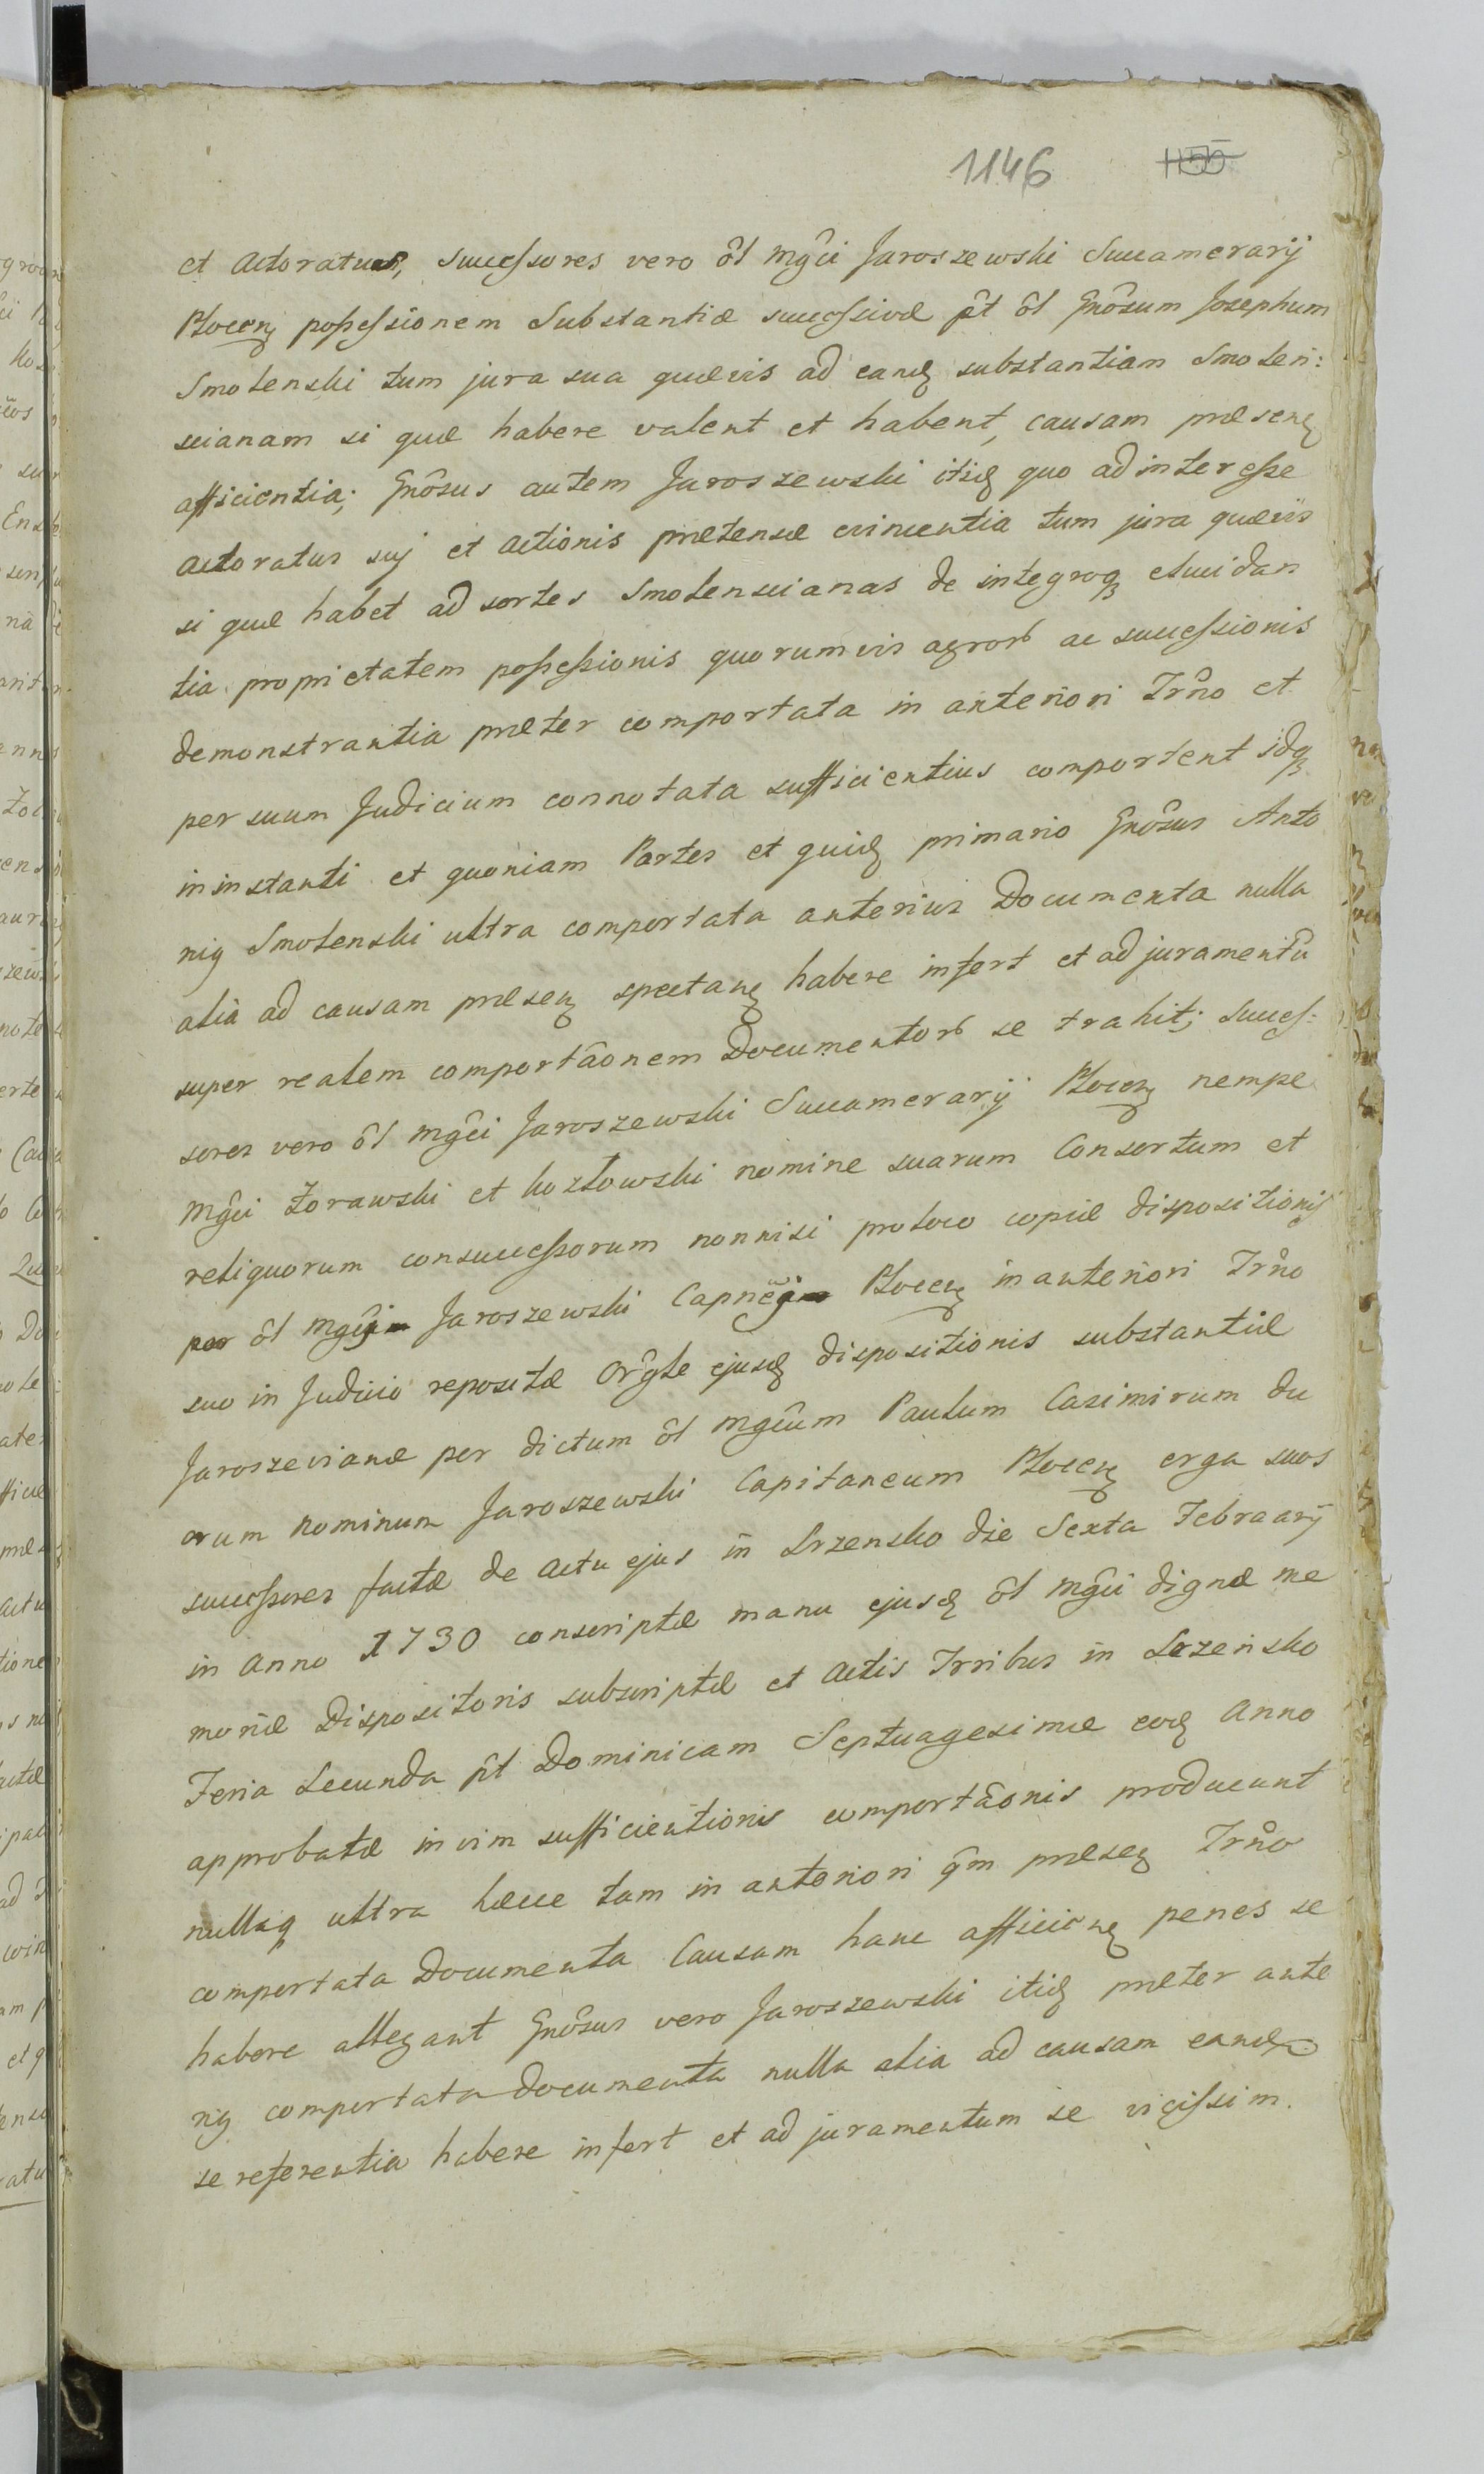 1146 1155
et Actoratus, Successores vero ôl Mgĉi Jaroszewski Succamerarij
Plocen̄ possessionem Substantiæ successivæ p̂t ôl Gnôsum Josephum
Smolenski tum jura sua quævis ad eand substantiam Smolen:
scianam si quæ habere valent et habent, causam præsen
afficientia; Gnôsus autem Jaroszewski itid quo ad interesse
actoratus suj et actionis prætensæ evincentia tum jura quævis
si quæ habet ad sortes Smolenscianas de integroq elucidan
tia proprietatem possessionis quorumvis agror ac successionis
demonstrantia præter comportata in anteriori Trño et
per suum Judicium connotata sufficientius comportent idq
in instanti et quoniam Partes et quid primario Gnôsus Anto
nig Smolenski ultra comportata anterius Documenta nulla
alia ad causam præsen spectan habere infert et ad juramentû
super realem comportâonem Documentor se trahit; Succes:
sores vero ôl Mgĉi Jaroszewski Succamerarij Plocen nempe
Mgĉi Żorawski et Kozłowski nomine suarum Consortum et
reliquorum consuccessorum nonnisi proloco copiæ dispositionis
per ôl Mgĉi Jaroszewski Capnēj Plocen in anteriori Trño
suo in Judicio repositæ Orĝle ejusd dispositionis substantiæ
Jaroszevianæ per dictum ôl Mgĉum Paulum Casimirum du
orum nominum Jaroszewski Capitaneum Plocen erga suos
successores factæ de actu ejus in Srzensko die Sexta Februarij
in Anno 1730 conscriptæ manu ejusd ôl Mgĉi dignæ me
moriæ Dispositoris subscriptæ et Actis Trribus in Srzensko
Feria Secunda p̂t Dominicam Septuagesimæ eod Anno
approbatæ in vim sufficientionis comportâonis producunt
nullaq ultra hæcce tam in anteriori q̂m præsen Trño
comportata Documenta Causam hanc afficien penes se
habere allegant Gnôsus vero Jaroszewski itid præter ante
rig comportata documenta nulla alia ad causam eand
se referentia habere infert et ad juramentum se vicissim.